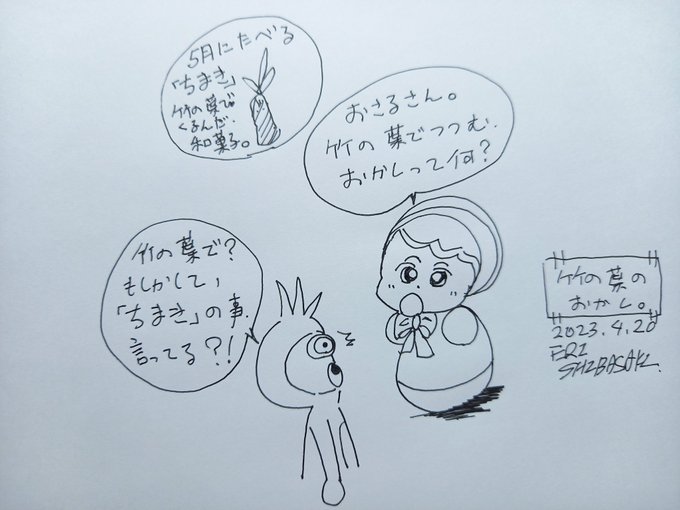 5月にたべる
「ちまき」
竹の葉で
くるんだ.
和菓子。
おさるさん。
竹の葉でつつむ.
おかしって何?
竹の葉で?
もしかして、
「ちまき」の事.
言ってる?!
竹の葉の
おかし。
2023.4.20
ERI
SHIBASAKI.